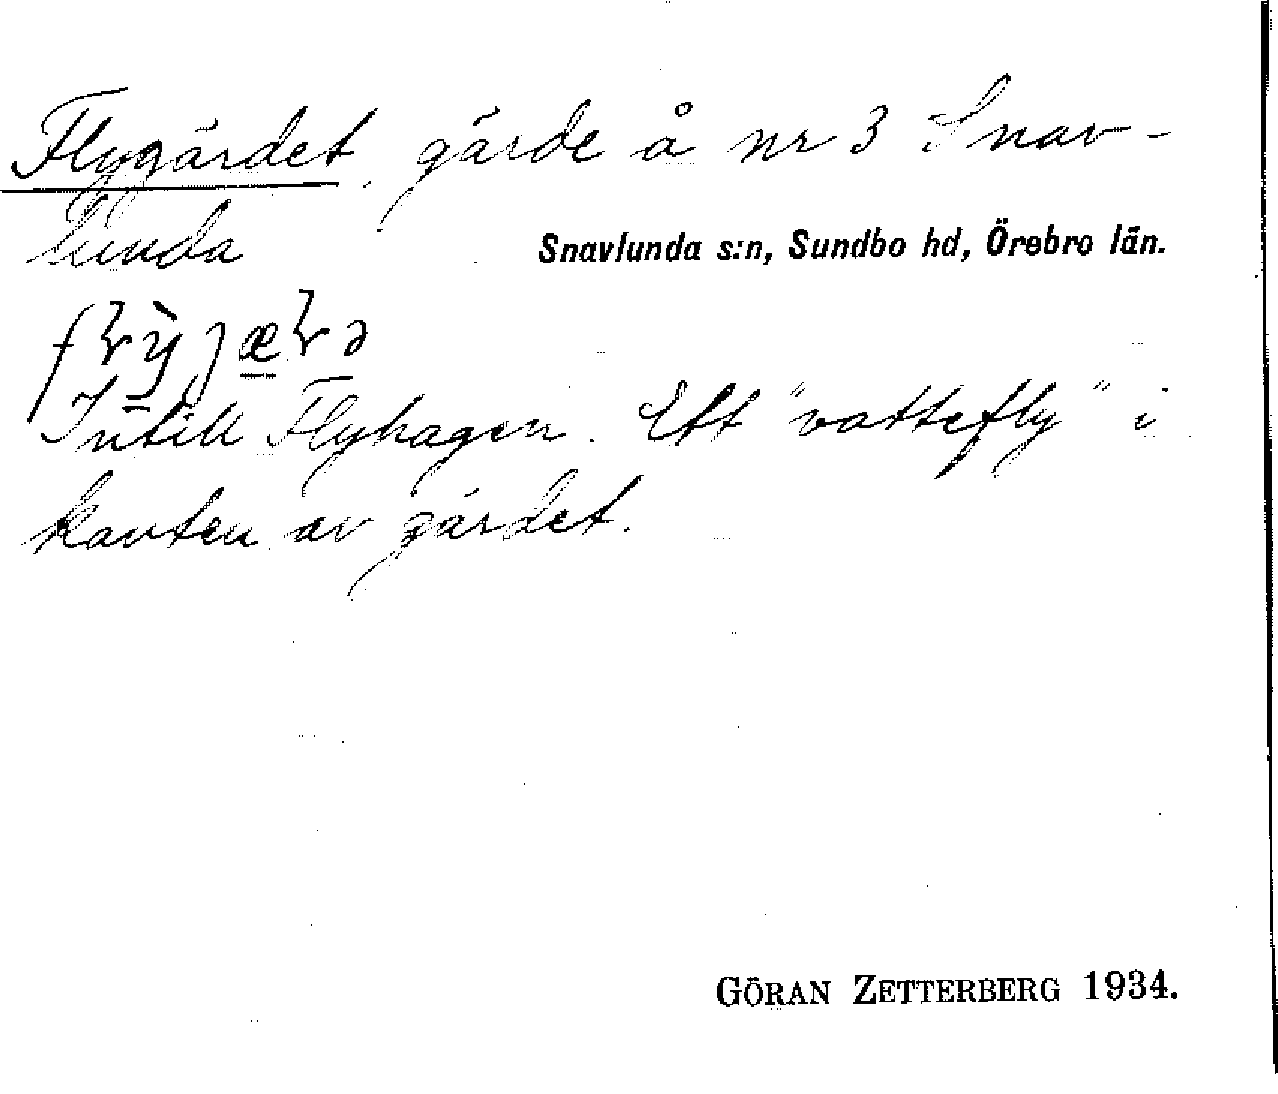 Flygärdet, gärde å nr 3 Snav-
lunda
Snavlunda s:n, Sundbo hd, Örebro län.
Intill Flyhagen. Ett "vattefly" i
kanten av gärdet.
GÖRAN ZETTERBERG 1934.